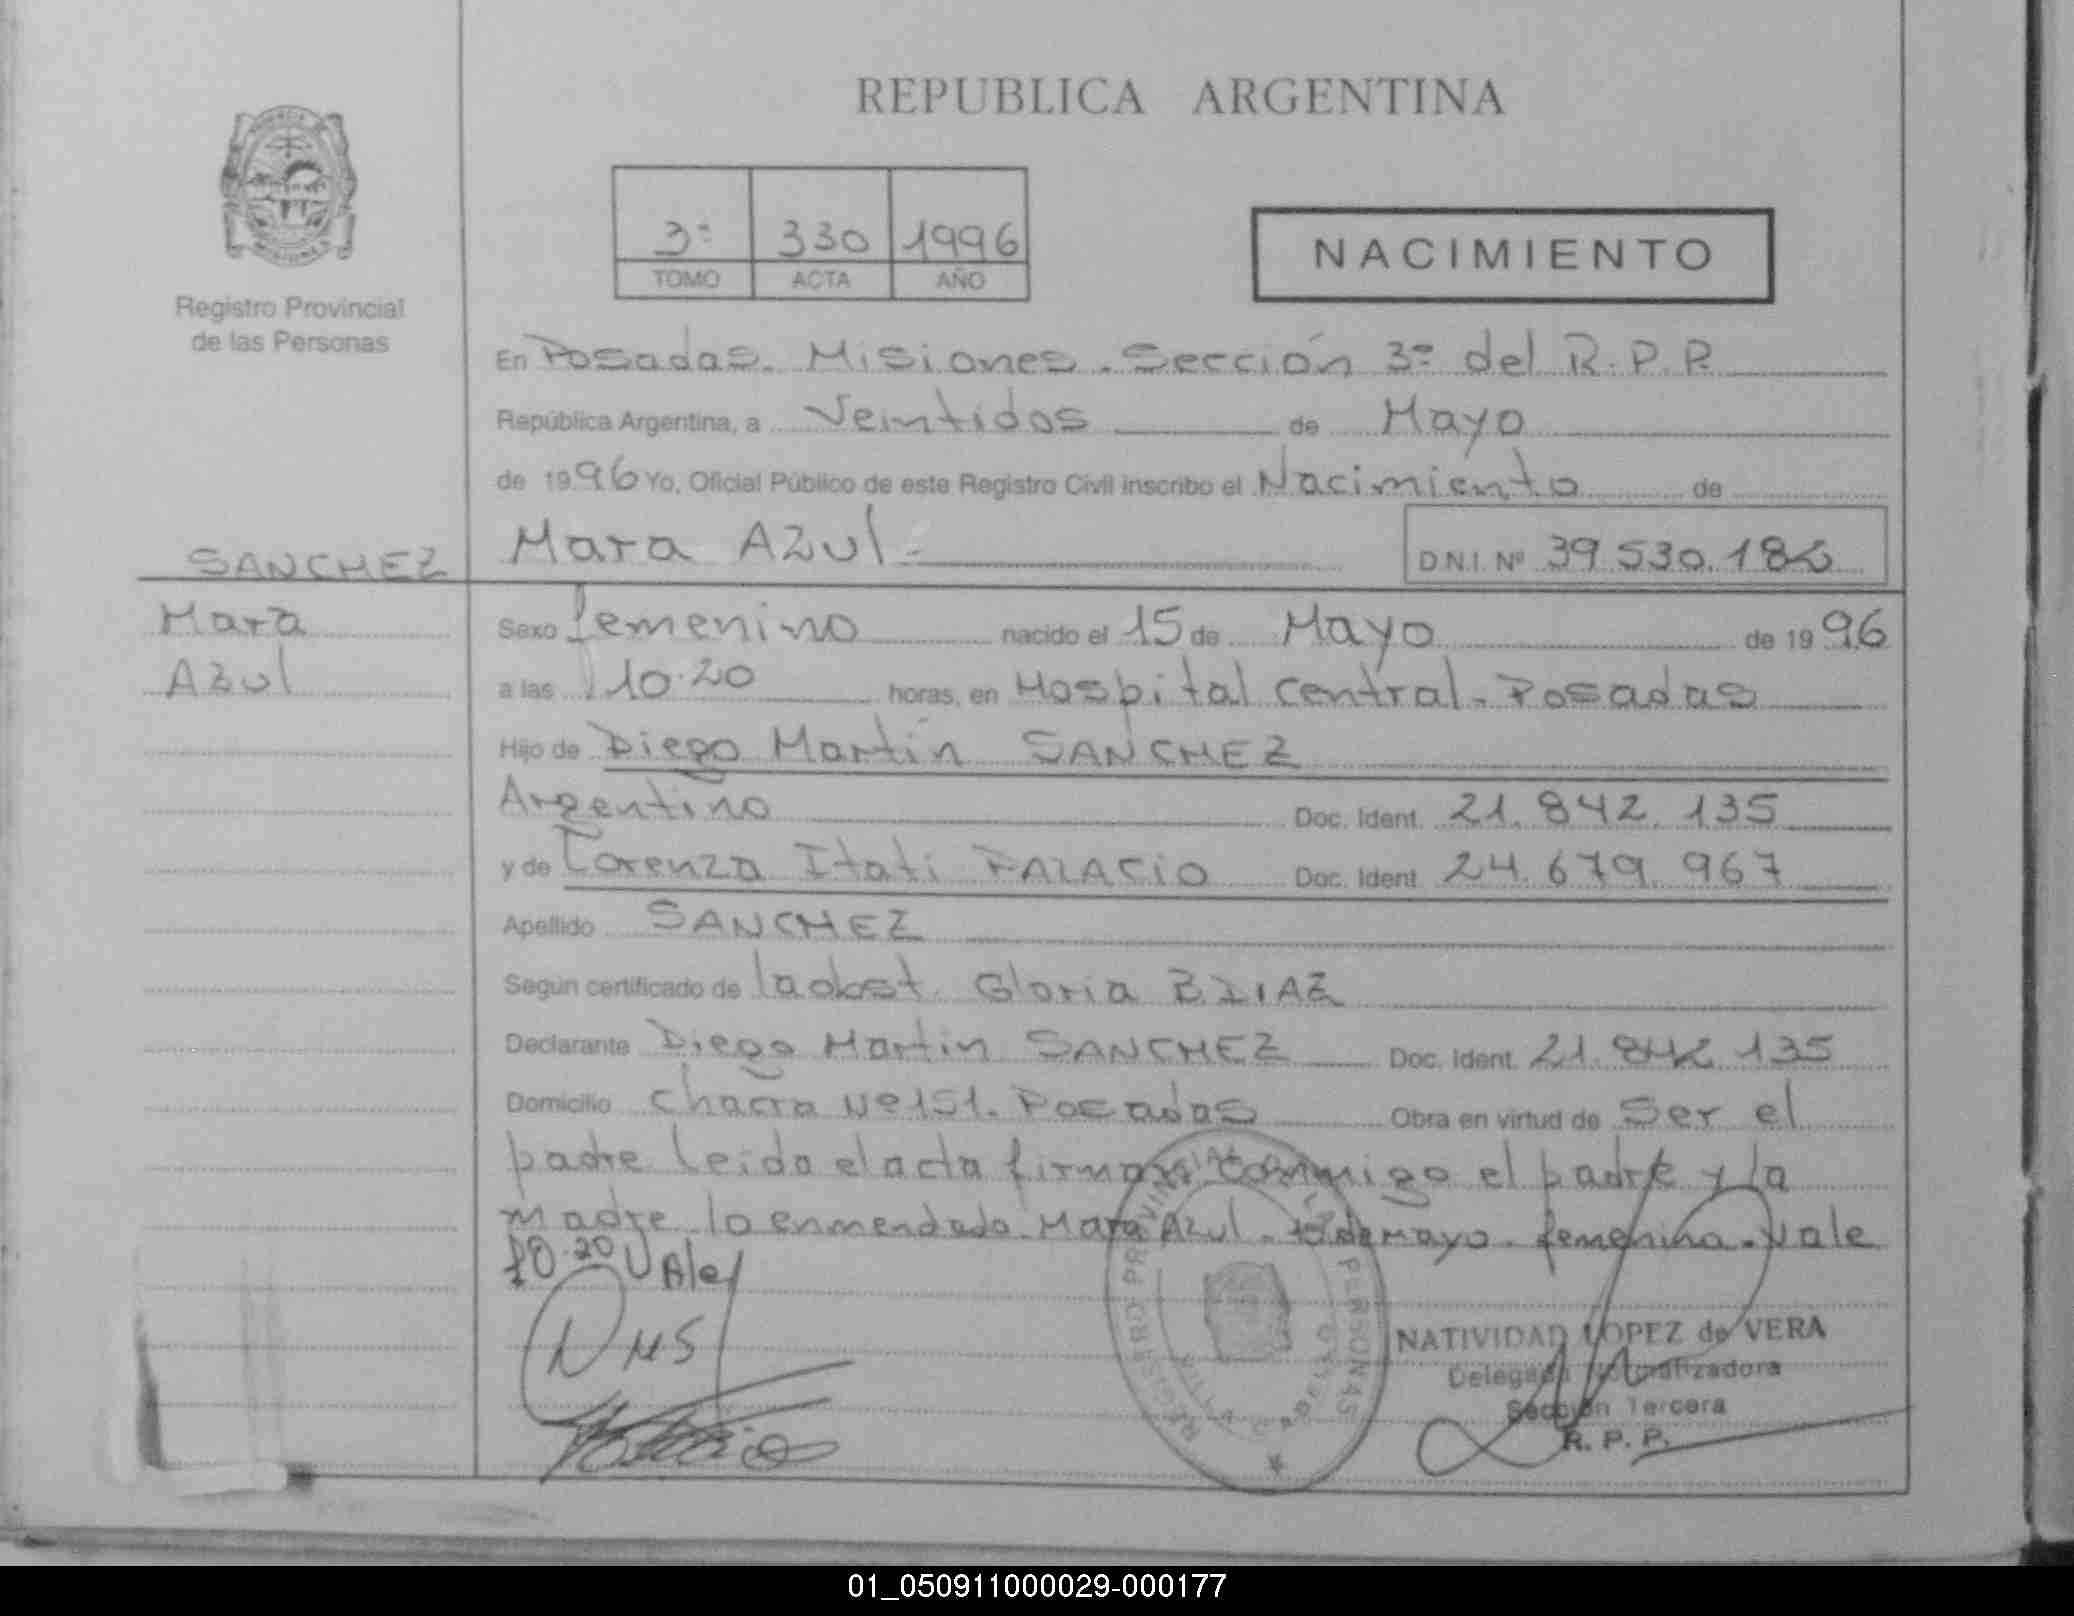 REPUBLICA ARGENTINA
3º 330 1996
TOMO ACTA AÑO
NACIMIENTO
Registro Provincial
de las Personas
En Posadas. Misiones. Sección 3º del R.P.P.
República Argentina, a Veintidos de Mayo
de 1996 Yo, Oficial Público de este Registro Civil inscribo el Nacimiento de
SANCHEZ
Mara Azul.
D.N.I. Nº 39.530.182
Mara
Azul
Sexo femenino nacido el 15 de Mayo de 1996
a las 10.20 horas, en Hospital Central. Posadas
Hijo de Diego Martín SANCHEZ
Argentino Doc. Ident. 21.842.135
y de Lorenza Itati PALACIO Doc. Ident. 24.679.967
Apellido SANCHEZ
Según certificado de la obst. Gloria B. DIAZ
Declarante Diego Martin SANCHEZ Doc. Ident. 21.842.135
Domicilio Chacra Nº 151. Posadas Obra en virtud de Ser el
padre leida el acta firman conmigo el padre y la
madre lo enmendado. Mara Azul. de mayo. femenina. vale
10.20 Vale
DMS
REGISTRO PROVINCIAL PERSONAS
NATIVIDAD LOPEZ de VERA
Delegada
Sección Tercera
R. P. P.
01_050911000029-000177